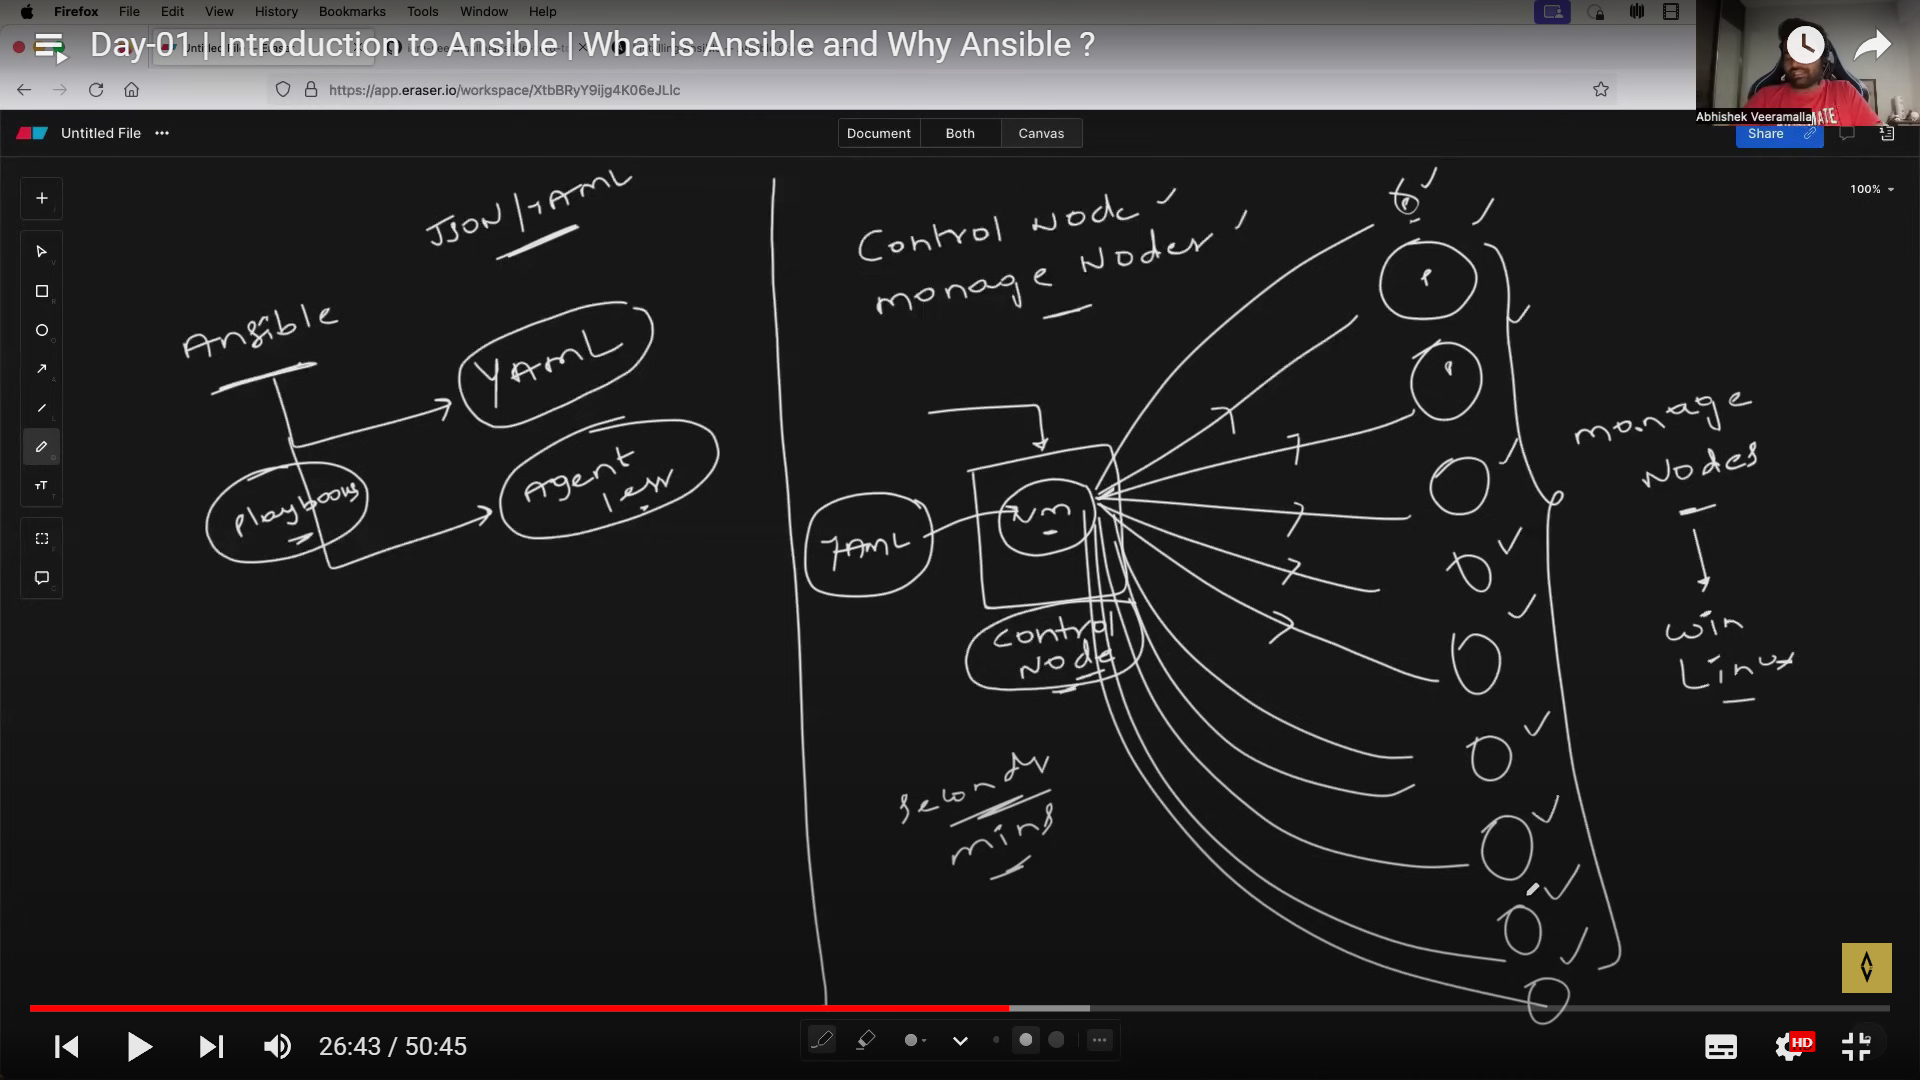 Firefox File Edit View History Bookmarks Tools Window Help
Day-01 | Introduction to Ansible | What is Ansible and Why Ansible ?
https://app.eraser.io/workspace/XtbBRyY9ijg4K06eJLlc
Abhishek Veeramalla
Untitled File
Document Both Canvas
Share
100%
JSON/YAML
Ansible
YAML
playbooks
Agent
less
Control Node
manage Nodes
YAML
control
Node
seconds
mins
manage
Nodes
win
Linux
26:43 / 50:45
HD